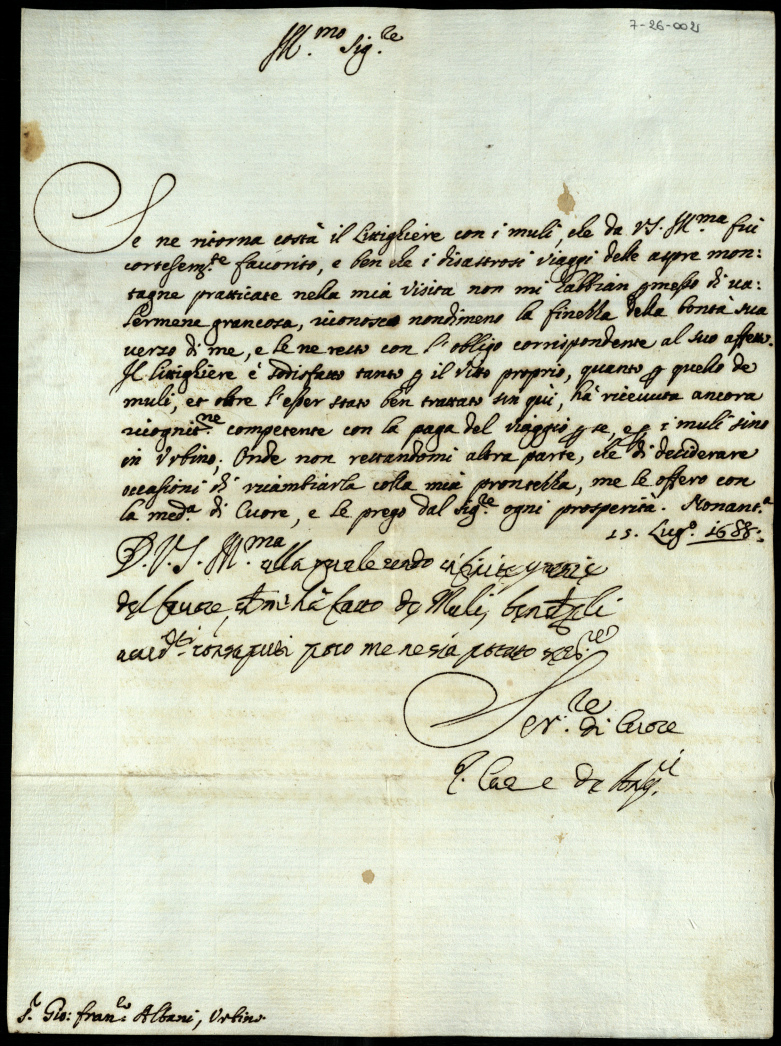 7-26-002
Ill.mo Sig.re
Se ne ritorna costà il Littighiere con i muli, che da VS. Ill.ma fui
cortesem.te favorito, e ben che i disastrosi viaggi delle aspre mon:
tagne pratticate nella mia visita non mi habbian permesso di va:
lermene gran cosa, riconosco nondimeno la finezza della bontà sua
verso di me, e le ne resto con l'obligo corrispondente al suo affetto.
Il Littighiere è sodisfatto tanto per il vitto proprio, quanto per quello de
muli, et oltre l'esser stato ben trattato sin quì, hà ricevuta ancora
ricognit.ne competente con la paga del viaggio per se, e per i muli sino
in Urbino; Onde non restandomi altra parte, che di desiderare
occasioni di ricambiarla colla mia prontezza, me le offero con
la med.a di Cuore, e le prego dal Sig.re ogni prosperità. Nonant.a
15. Lug.o 1688:
D. V. S. Ill.ma alla quale rendo infinite grazie
del favore, che mi hà fatto de Muli, benche
poco me ne sia potuto
Ser.re di Cuore
Car e de Ang.i
S.r Gio: Fran.co Albani, Urbino